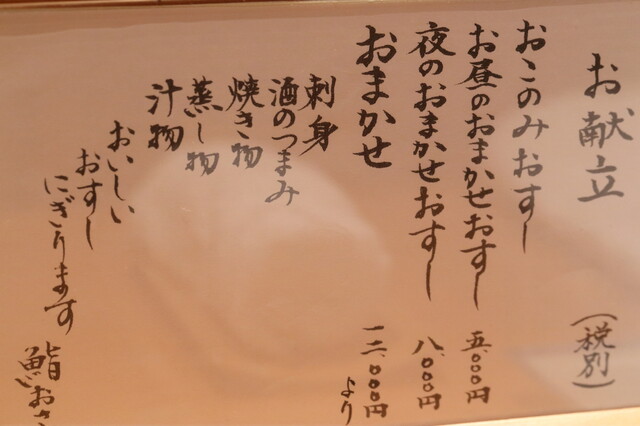 お献立 (税別)
おこのみおすし
お昼のおまかせおすし 五.000円
夜のおまかせおすし 八.000円
おまかせ 一二.000円
より
刺身
酒のつまみ
焼き物
蒸し物
汁物
おいしい
おすし
にぎります
鮨お